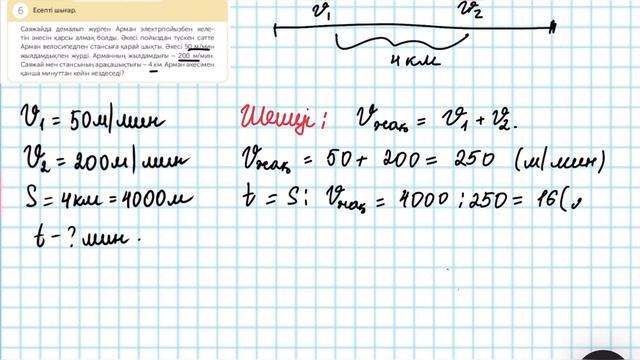 6 Есепті шығар.
Саяжайда демалып жүрген Арман электрпойызбен келе-
тін әкесін қарсы алмақ болды. Әкесі пойыздан түскен сәтте
Арман велосипедпен стансыға қарай шықты. Әкесі 50 м/мин
жылдамдықпен жүрді. Арманның жылдамдығы – 200 м/мин.
Саяжай мен стансының арақашықтығы – 4 км. Арман әкесімен
қанша минуттан кейін кездеседі?
V₁ V₂
4 км
V₁ = 50м/мин
V₂ = 200м/мин
S = 4км = 4000м
t - ? мин.
Шешуі: Vжақ = V₁ + V₂.
Vжақ = 50 + 200 = 250 (м/мин)
t = S : Vжақ = 4000 : 250 = 16 (